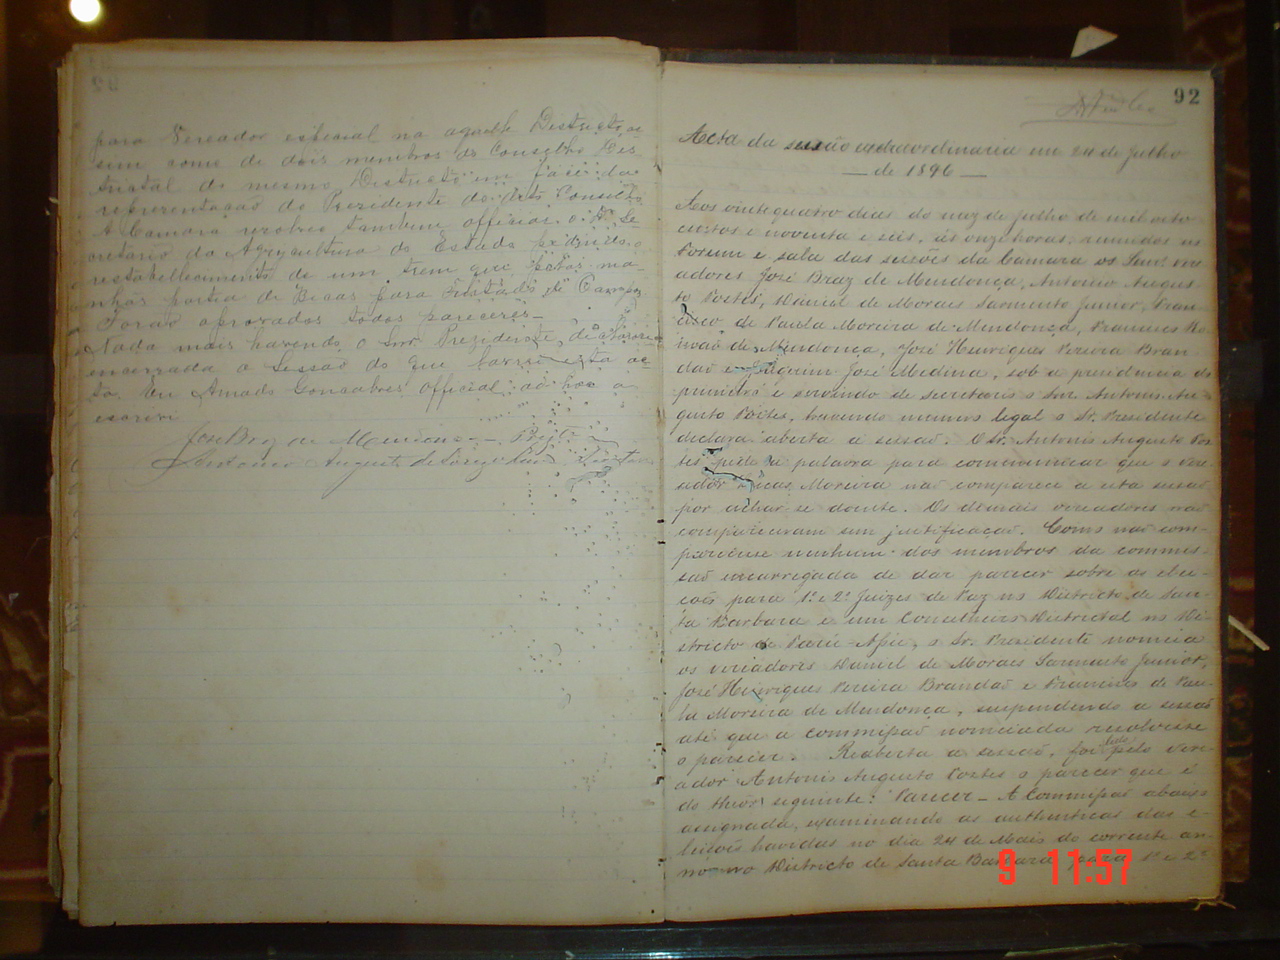 para Vereador especial na aquelle Districto, as-
sim como de dois membros do Conselho Dis-
trictal do mesmo Districto em face da
representação do Prezidente do dito Conselho.
A Camara resolveu tambem officiar o Dr. Se-
cretario da Agricultura do Estado pedindo o
restabellecimento de um trem que pelas ma-
nhas partia de Bicas para
Forão aprovados todos pareceres.
Nada mais havendo o Snr. Prezidente
encerrada a Sessão do que lavrou esta ac-
ta. Eu Amado Gonçalves official ad hoc a
escrevi
José Braz de Mendonça
Antonio Augusto
92
Acta da sessão extraordinaria em 24 de Julho
— de 1896 —
Aos vinte quatro dias do mez de Julho de mil oito
centos e noventa e seis, ás onze horas, reunidos no
Forum e sala das sessões da Camara os Snrs. vere-
adores José Braz de Mendonça, Antonio Augus-
to Portes, Daniel de Moraes Sarmento Junior, Fran-
cisco de Paula Moreira de Mendonça, Francisco Ro-
mão de Mendonça, José Henriques Pereira Bran-
dão e José Medina, sob a presidencia do
primeiro e servindo de secretario o Snr. Antonio Au-
gusto Portes, havendo numero legal o Sr. Presidente
declara aberta a sessão. O Sr. Antonio Augusto Por-
tes pede a palavra para communicar que o vere-
ador Lucas Moreira não comparece a esta sessão
por achar-se doente. Os demais vereadores não
compareceram sem justificação. Como não com-
parecesse nenhum dos membros da commis-
são encarregada de dar parecer sobre as elei-
ções para 1º e 2º Juizes de Paz no Districto de San-
ta Barbara e um Conselheiro Districtal no Di-
stricto de o Sr. Presidente nomeia
os vereadores Daniel de Moraes Sarmento Junior,
José Henriques Pereira Brandão e Francisco de Pau-
la Moreira de Mendonça, suspendendo a sessão
até que a commissão nomeiada resolvesse
o parecer. Reaberta a sessão, foi lido pelo vere-
ador Antonio Augusto Portes o parecer que é
do theor seguinte: Parecer — A Commissão abaixo
assignada, examinando as authenticas das e-
leições havidas no dia 24 de Maio do corrente an-
no no Districto de Santa Barbara para 1º e 2º
9 11:57